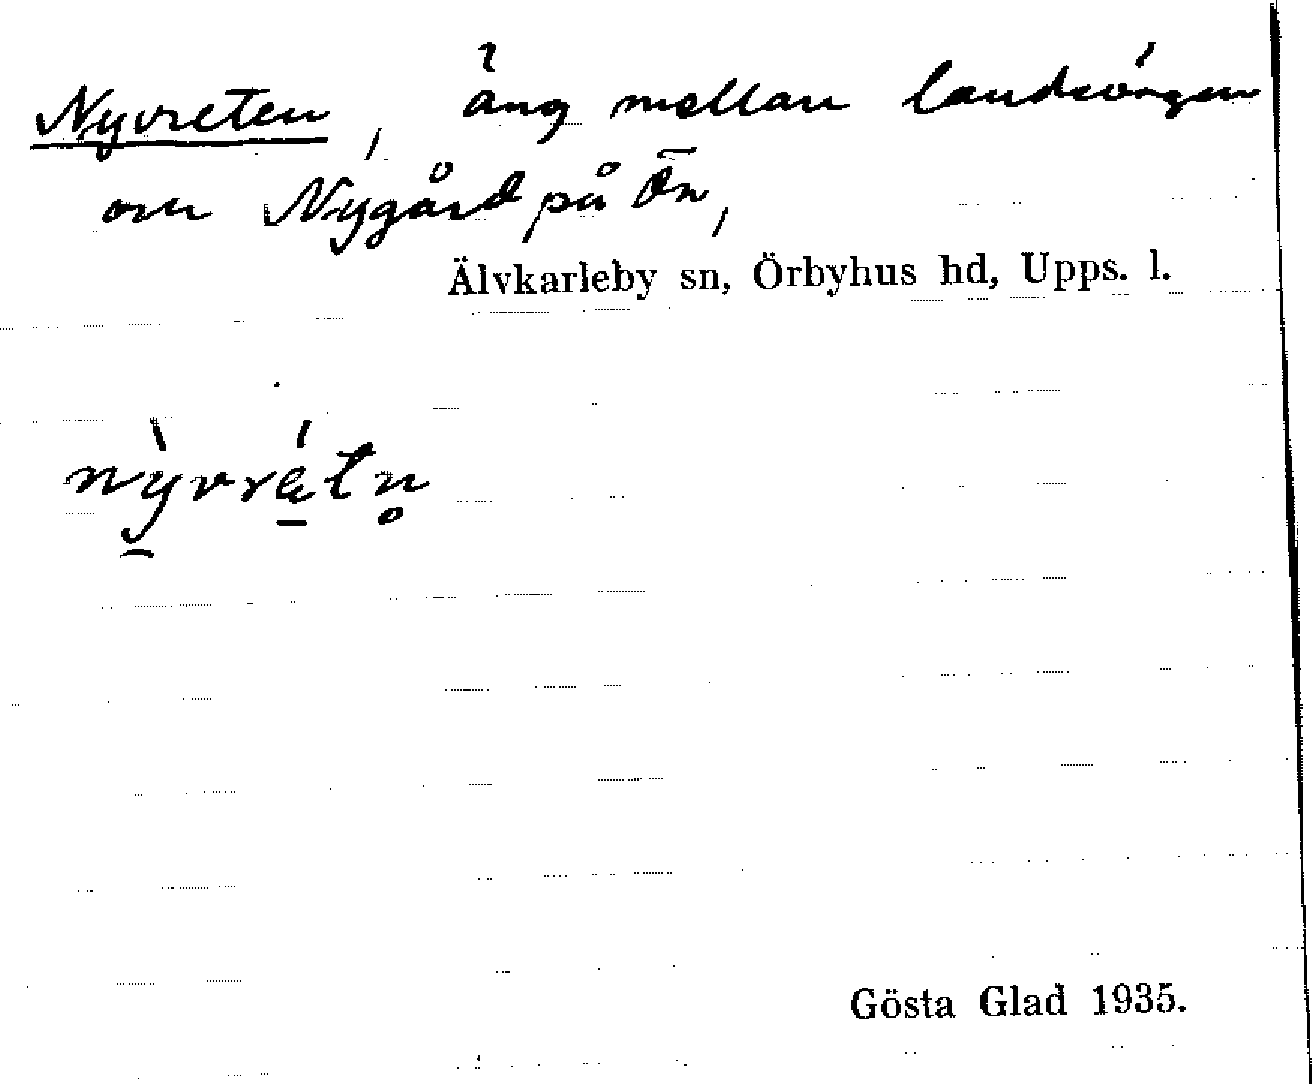 Nyvreten, äng mellan landsvägen
om Nygård på Ön,
Älvkarleby sn, Örbyhus hd, Upps. l.
nỳvrätn̥
Gösta Glad 1935.